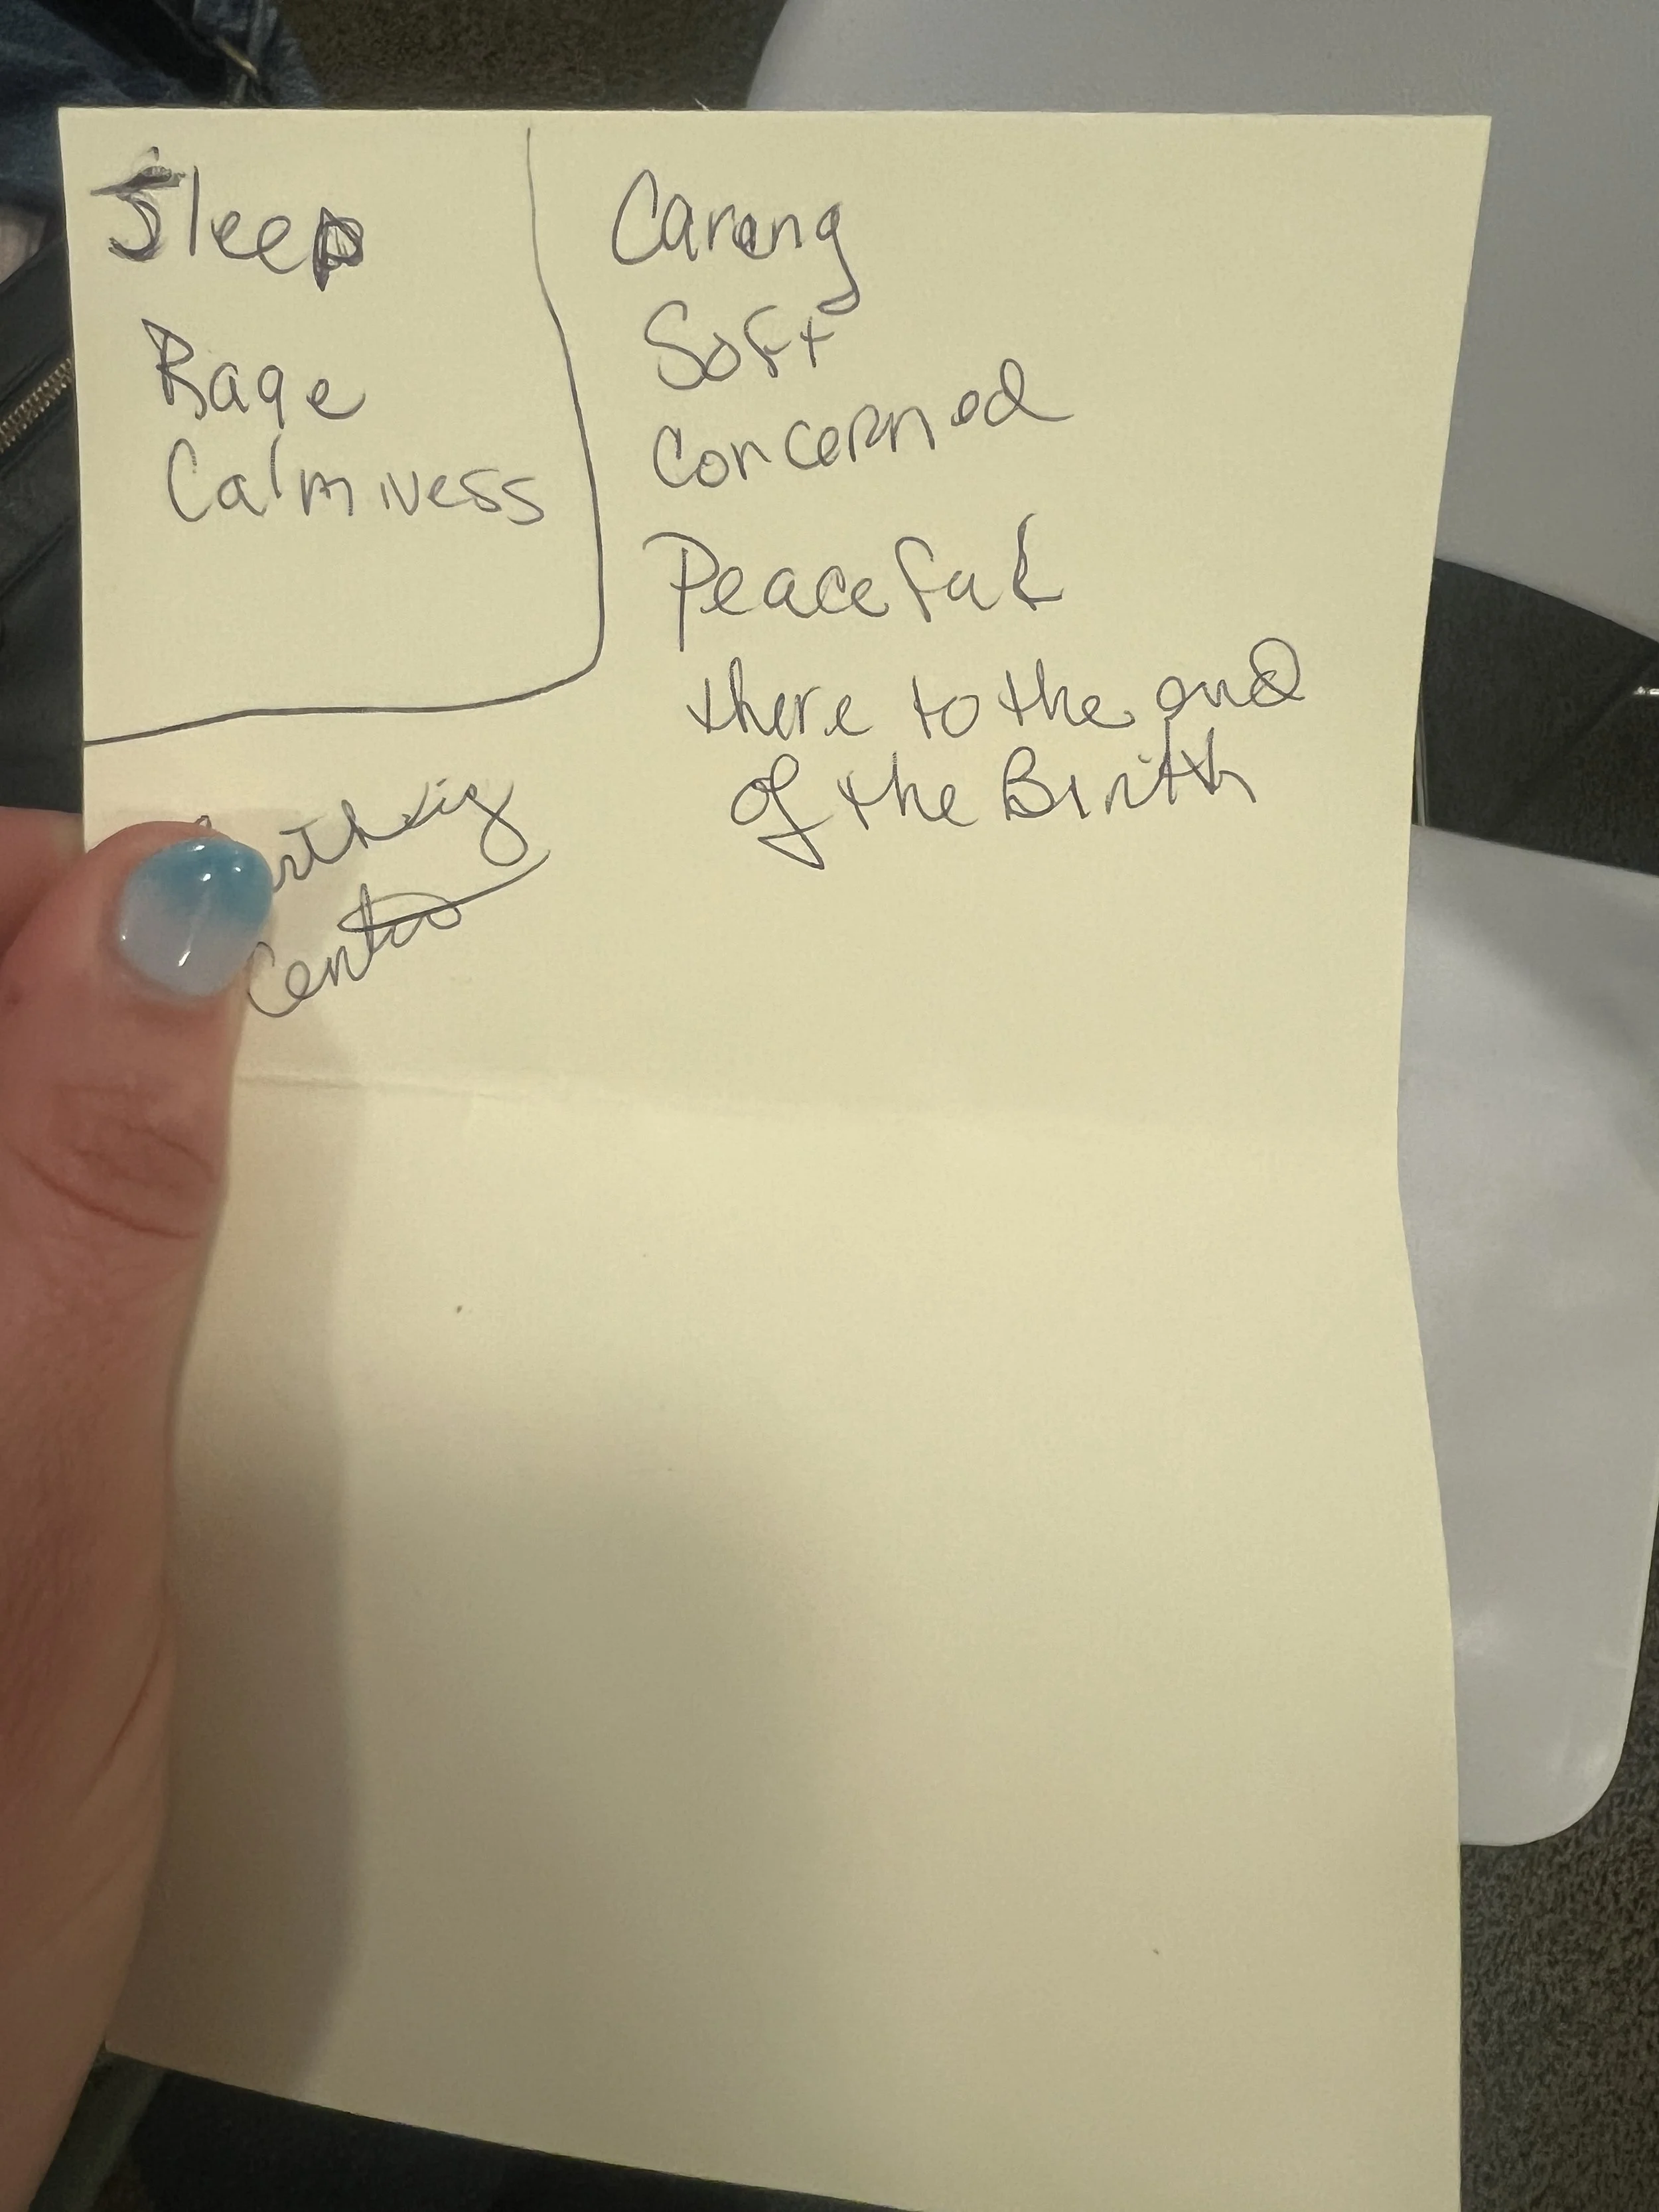 Sleep
Rage
Calmness
Caring
Soft
Concerned
Peaceful
there to the end
of the Birth